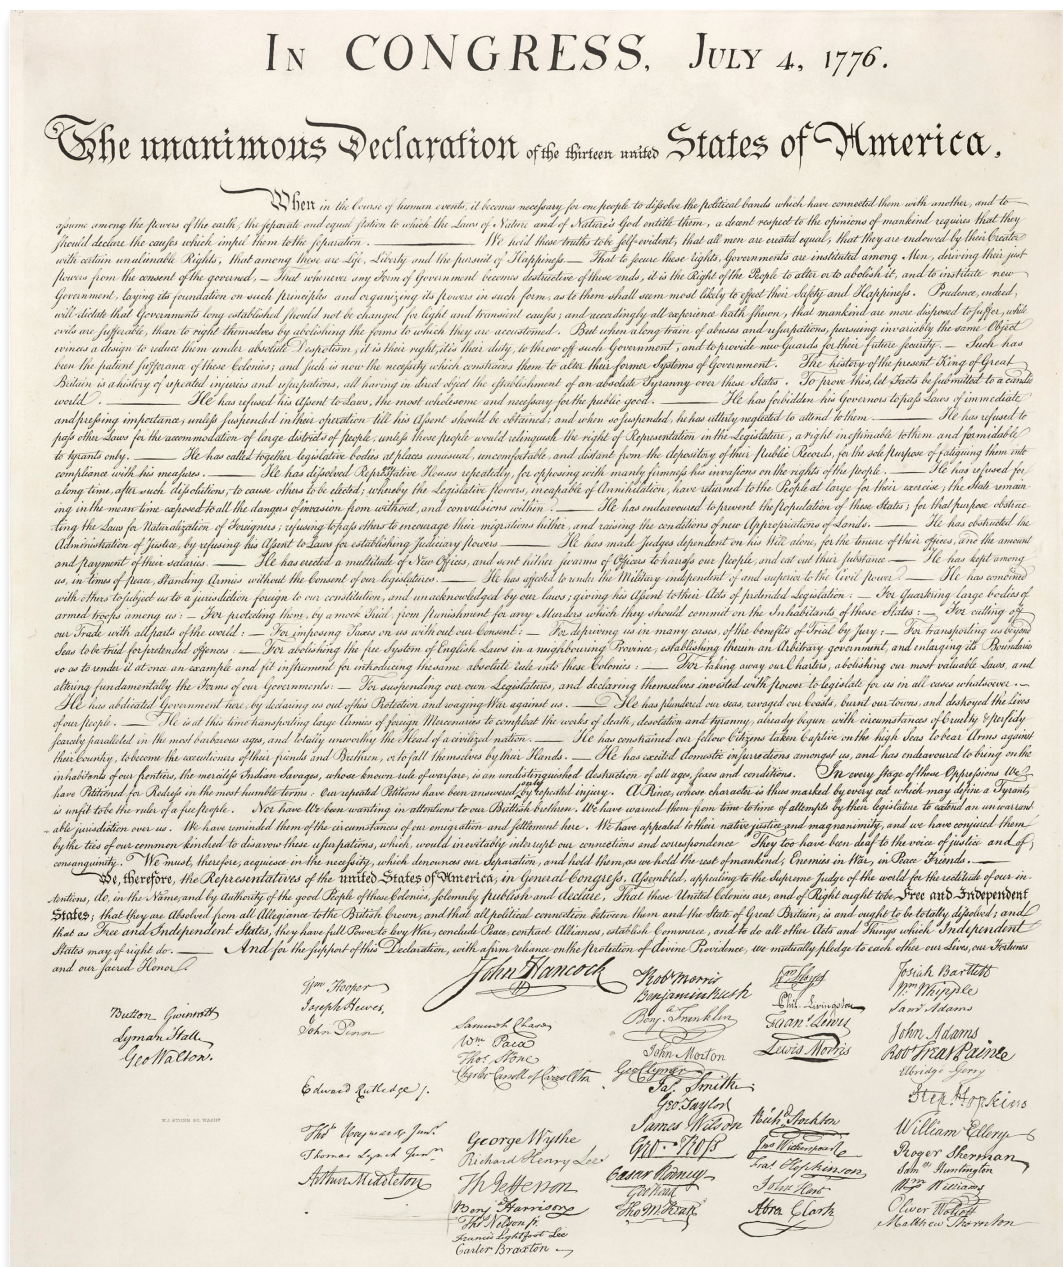 In CONGRESS, July 4, 1776.
The unanimous Declaration of the thirteen united States of America,
When in the Course of human events, it becomes necessary for one people to dissolve the political bands which have connected them with another, and to
assume among the powers of the earth, the separate and equal station to which the Laws of Nature and of Nature's God entitle them, a decent respect to the opinions of mankind requires that they
should declare the causes which impel them to the separation. — We hold these truths to be self-evident, that all men are created equal, that they are endowed by their Creator
with certain unalienable Rights, that among these are Life, Liberty and the pursuit of Happiness. — That to secure these rights, Governments are instituted among Men, deriving their just
powers from the consent of the governed, — That whenever any Form of Government becomes destructive of these ends, it is the Right of the People to alter or to abolish it, and to institute new
Government, laying its foundation on such principles and organizing its powers in such form, as to them shall seem most likely to effect their Safety and Happiness. Prudence, indeed,
will dictate that Governments long established should not be changed for light and transient causes; and accordingly all experience hath shewn, that mankind are more disposed to suffer, while
evils are sufferable, than to right themselves by abolishing the forms to which they are accustomed. But when a long train of abuses and usurpations, pursuing invariably the same Object
evinces a design to reduce them under absolute Despotism, it is their right, it is their duty, to throw off such Government, and to provide new Guards for their future security. — Such has
been the patient sufferance of these Colonies; and such is now the necessity which constrains them to alter their former Systems of Government. The history of the present King of Great
Britain is a history of repeated injuries and usurpations, all having in direct object the establishment of an absolute Tyranny over these States. To prove this, let Facts be submitted to a candid
world. — He has refused his Assent to Laws, the most wholesome and necessary for the public good. — He has forbidden his Governors to pass Laws of immediate
and pressing importance, unless suspended in their operation till his Assent should be obtained; and when so suspended, he has utterly neglected to attend to them. — He has refused to
pass other Laws for the accommodation of large districts of people, unless those people would relinquish the right of Representation in the Legislature, a right inestimable to them and formidable
to tyrants only. — He has called together legislative bodies at places unusual, uncomfortable, and distant from the depository of their Public Records, for the sole purpose of fatiguing them into
compliance with his measures. — He has dissolved Representative Houses repeatedly, for opposing with manly firmness his invasions on the rights of the people. — He has refused for
a long time, after such dissolutions, to cause others to be elected; whereby the Legislative powers, incapable of Annihilation, have returned to the People at large for their exercise; the State remain
ing in the mean time exposed to all the dangers of invasion from without, and convulsions within. — He has endeavoured to prevent the population of these States; for that purpose obstruc-
ting the Laws for Naturalization of Foreigners; refusing to pass others to encourage their migrations hither, and raising the conditions of new Appropriations of Lands. — He has obstructed the
Administration of Justice, by refusing his Assent to Laws for establishing Judiciary powers. — He has made Judges dependent on his Will alone, for the tenure of their offices, and the amount
and payment of their salaries. — He has erected a multitude of New Offices, and sent hither swarms of Officers to harrass our People, and eat out their substance. — He has kept among
us, in times of peace, Standing Armies without the Consent of our legislatures. — He has affected to render the Military independent of and superior to the Civil power. — He has combined
with others to subject us to a jurisdiction foreign to our constitution, and unacknowledged by our laws; giving his Assent to their Acts of pretended Legislation: — For Quartering large bodies of
armed troops among us: — For protecting them, by a mock Trial, from punishment for any Murders which they should commit on the Inhabitants of these States: — For cutting off
our Trade with all parts of the world: — For imposing Taxes on us without our Consent: — For depriving us in many cases, of the benefits of Trial by Jury: — For transporting us beyond
Seas to be tried for pretended offences: — For abolishing the free System of English Laws in a neighbouring Province, establishing therein an Arbitrary government, and enlarging its Boundaries
so as to render it at once an example and fit instrument for introducing the same absolute rule into these Colonies: — For taking away our Charters, abolishing our most valuable Laws, and
altering fundamentally the Forms of our Governments: — For suspending our own Legislatures, and declaring themselves invested with power to legislate for us in all cases whatsoever. —
He has abdicated Government here, by declaring us out of his Protection and waging War against us. — He has plundered our seas, ravaged our Coasts, burnt our towns, and destroyed the lives
of our people. — He is at this time transporting large Armies of foreign Mercenaries to compleat the works of death, desolation and tyranny, already begun with circumstances of Cruelty & perfidy
scarcely paralleled in the most barbarous ages, and totally unworthy the Head of a civilized nation. — He has constrained our fellow Citizens taken Captive on the high Seas to bear Arms against
their Country, to become the executioners of their friends and Brethren, or to fall themselves by their Hands. — He has excited domestic insurrections amongst us, and has endeavoured to bring on the
inhabitants of our frontiers, the merciless Indian Savages, whose known rule of warfare, is an undistinguished destruction of all ages, sexes and conditions. In every stage of these Oppressions We
have Petitioned for Redress in the most humble terms: Our repeated Petitions have been answered only by repeated injury. A Prince, whose character is thus marked by every act which may define a Tyrant,
is unfit to be the ruler of a free people. Nor have We been wanting in attentions to our Brittish brethren. We have warned them from time to time of attempts by their legislature to extend an unwarrant
able jurisdiction over us. We have reminded them of the circumstances of our emigration and settlement here. We have appealed to their native justice and magnanimity, and we have conjured them
by the ties of our common kindred to disavow these usurpations, which, would inevitably interrupt our connections and correspondence They too have been deaf to the voice of justice and of
consanguinity. We must, therefore, acquiesce in the necessity, which denounces our Separation, and hold them, as we hold the rest of mankind, Enemies in War, in Peace Friends. —
We, therefore, the Representatives of the united States of America, in General Congress, Assembled, appealing to the Supreme Judge of the world for the rectitude of our in-
tentions, do, in the Name, and by Authority of the good People of these Colonies, solemnly publish and declare, That these United Colonies are, and of Right ought to be Free and Independent
States; that they are Absolved from all Allegiance to the British Crown, and that all political connection between them and the State of Great Britain, is and ought to be totally dissolved; and
that as Free and Independent States, they have full Power to levy War, conclude Peace, contract Alliances, establish Commerce, and to do all other Acts and Things which Independent
States may of right do. — And for the support of this Declaration, with a firm reliance on the protection of divine Providence, we mutually pledge to each other our Lives, our Fortunes
and our sacred Honor.
Button Gwinnett
Lyman Hall
Geo Walton.
Wm Hooper
Joseph Hewes,
John Penn
Edward Rutledge /.
Thos Heyward Junr.
Thomas Lynch Junr.
Arthur Middleton
John Hancock
Samuel Chase
Wm Paca
Thos Stone
Charles Carroll of Carrollton
George Wythe
Richard Henry Lee
Th Jefferson
Benj Harrison
Thos Nelson jr.
Francis Lightfoot Lee
Carter Braxton
Robt Morris
Benjamin Rush
Benj. Franklin
John Morton
Geo Clymer
Jas. Smith
Geo. Taylor
James Wilson
Geo. Ross
Caesar Rodney
Geo Read
Tho M:Kean
Wm Floyd
Phil. Livingston
Frans. Lewis
Lewis Morris
Richd. Stockton
Jno Witherspoon
Fras. Hopkinson
John Hart
Abra Clark
Josiah Bartlett
Wm: Whipple
Saml Adams
John Adams
Robt Treat Paine
Elbridge Gerry
Step. Hopkins
William Ellery
Roger Sherman
Samel Huntington
Wm Williams
Oliver Wolcott
Matthew Thornton
W.J. STONE SC. WASHN